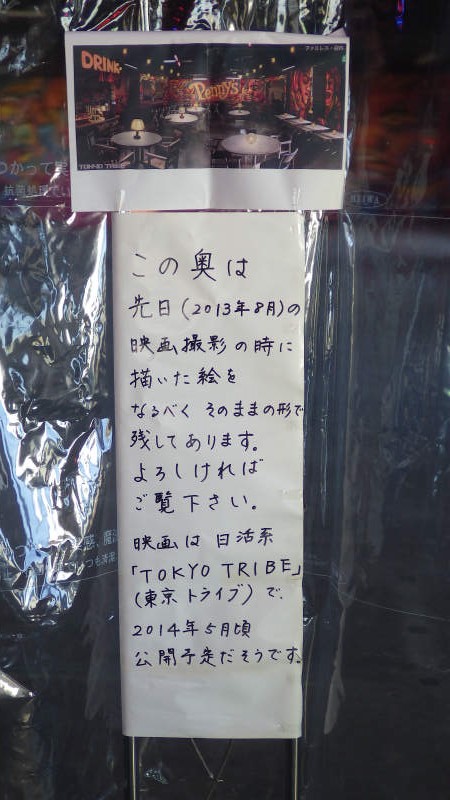 ファミレス・店内
DRINK
Penny's
この奥は
先日(2013年8月)の
映画撮影の時に
描いた絵を
なるべく そのままの形で
残してあります。
よろしければ
ご覧下さい。
映画は 日活系
「TOKYO TRIBE」
(東京トライブ)で、
2014年5月頃
公開予定だそうです。